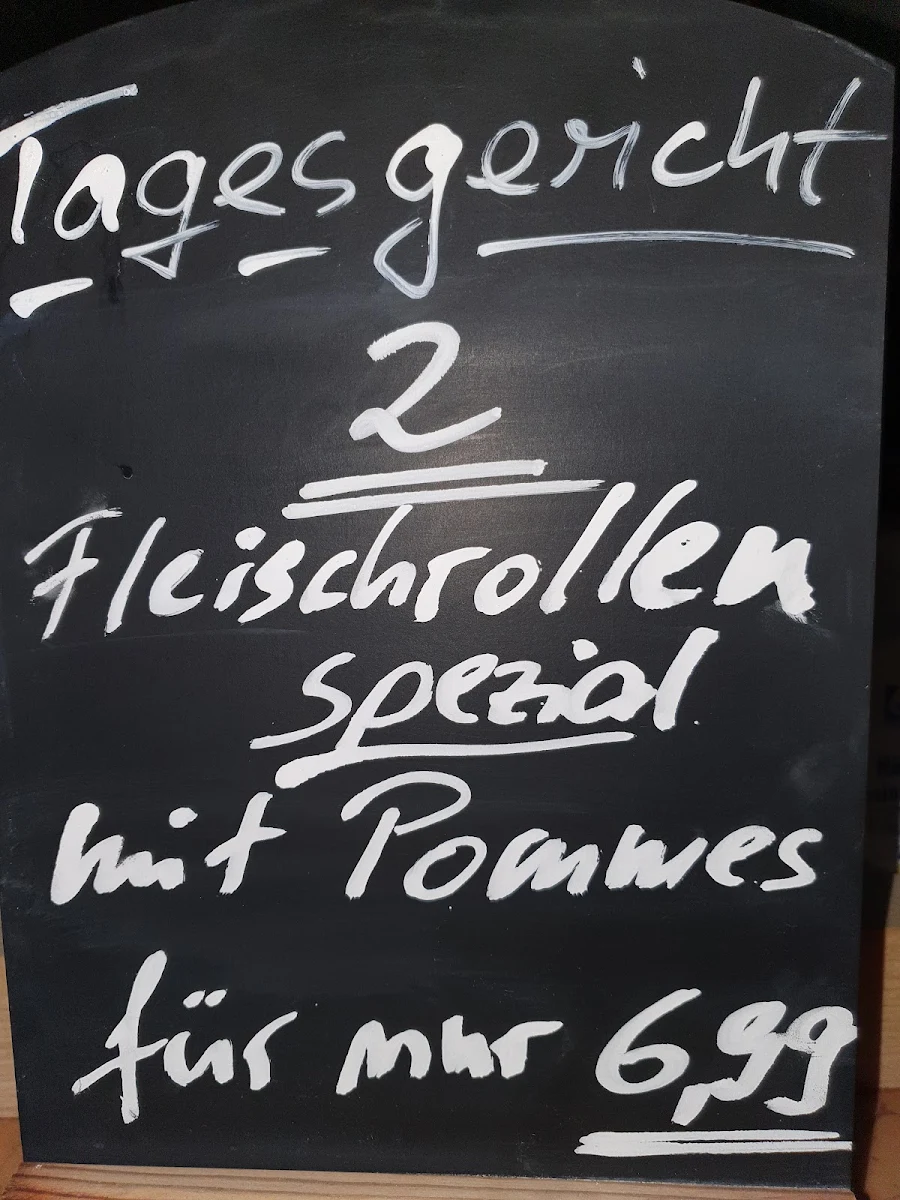 Tagesgericht
2
Fleischrollen
spezial
mit Pommes
für nur 6,99